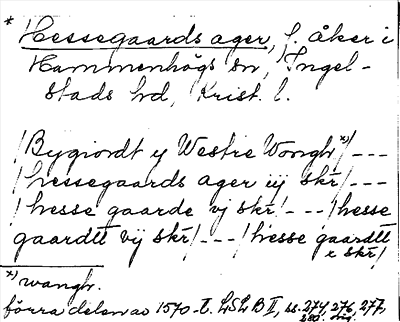 * Hessegaards ager, f. åker i
Hammenhögs sn, Ingel-
stads hd, Krist. l.
/Bygiordt y Westre Wongh *)/ ---
/hessegaards ager iij skr̄/ ---
/hesse gaarde vj skr̄/ --- /hesse
gaardtt vij skr̄/ --- /hesse gaardtt
x skr̄/
*) wangh.
förra delen av 1570-t. LSLB II, ss. 274, 276, 277,
280.